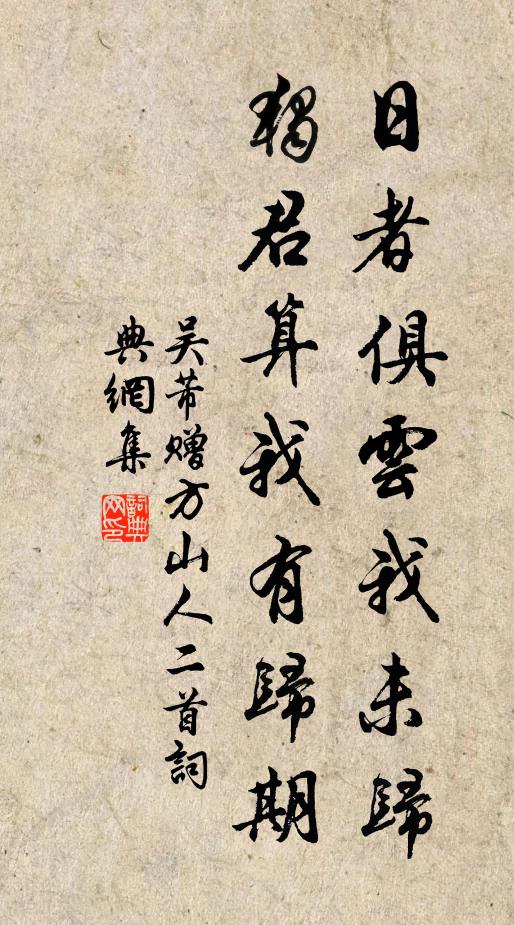 日者俱雲我未歸
獨君算我有歸期
吳芾贈方山人二首詞
典網集
詞典網印